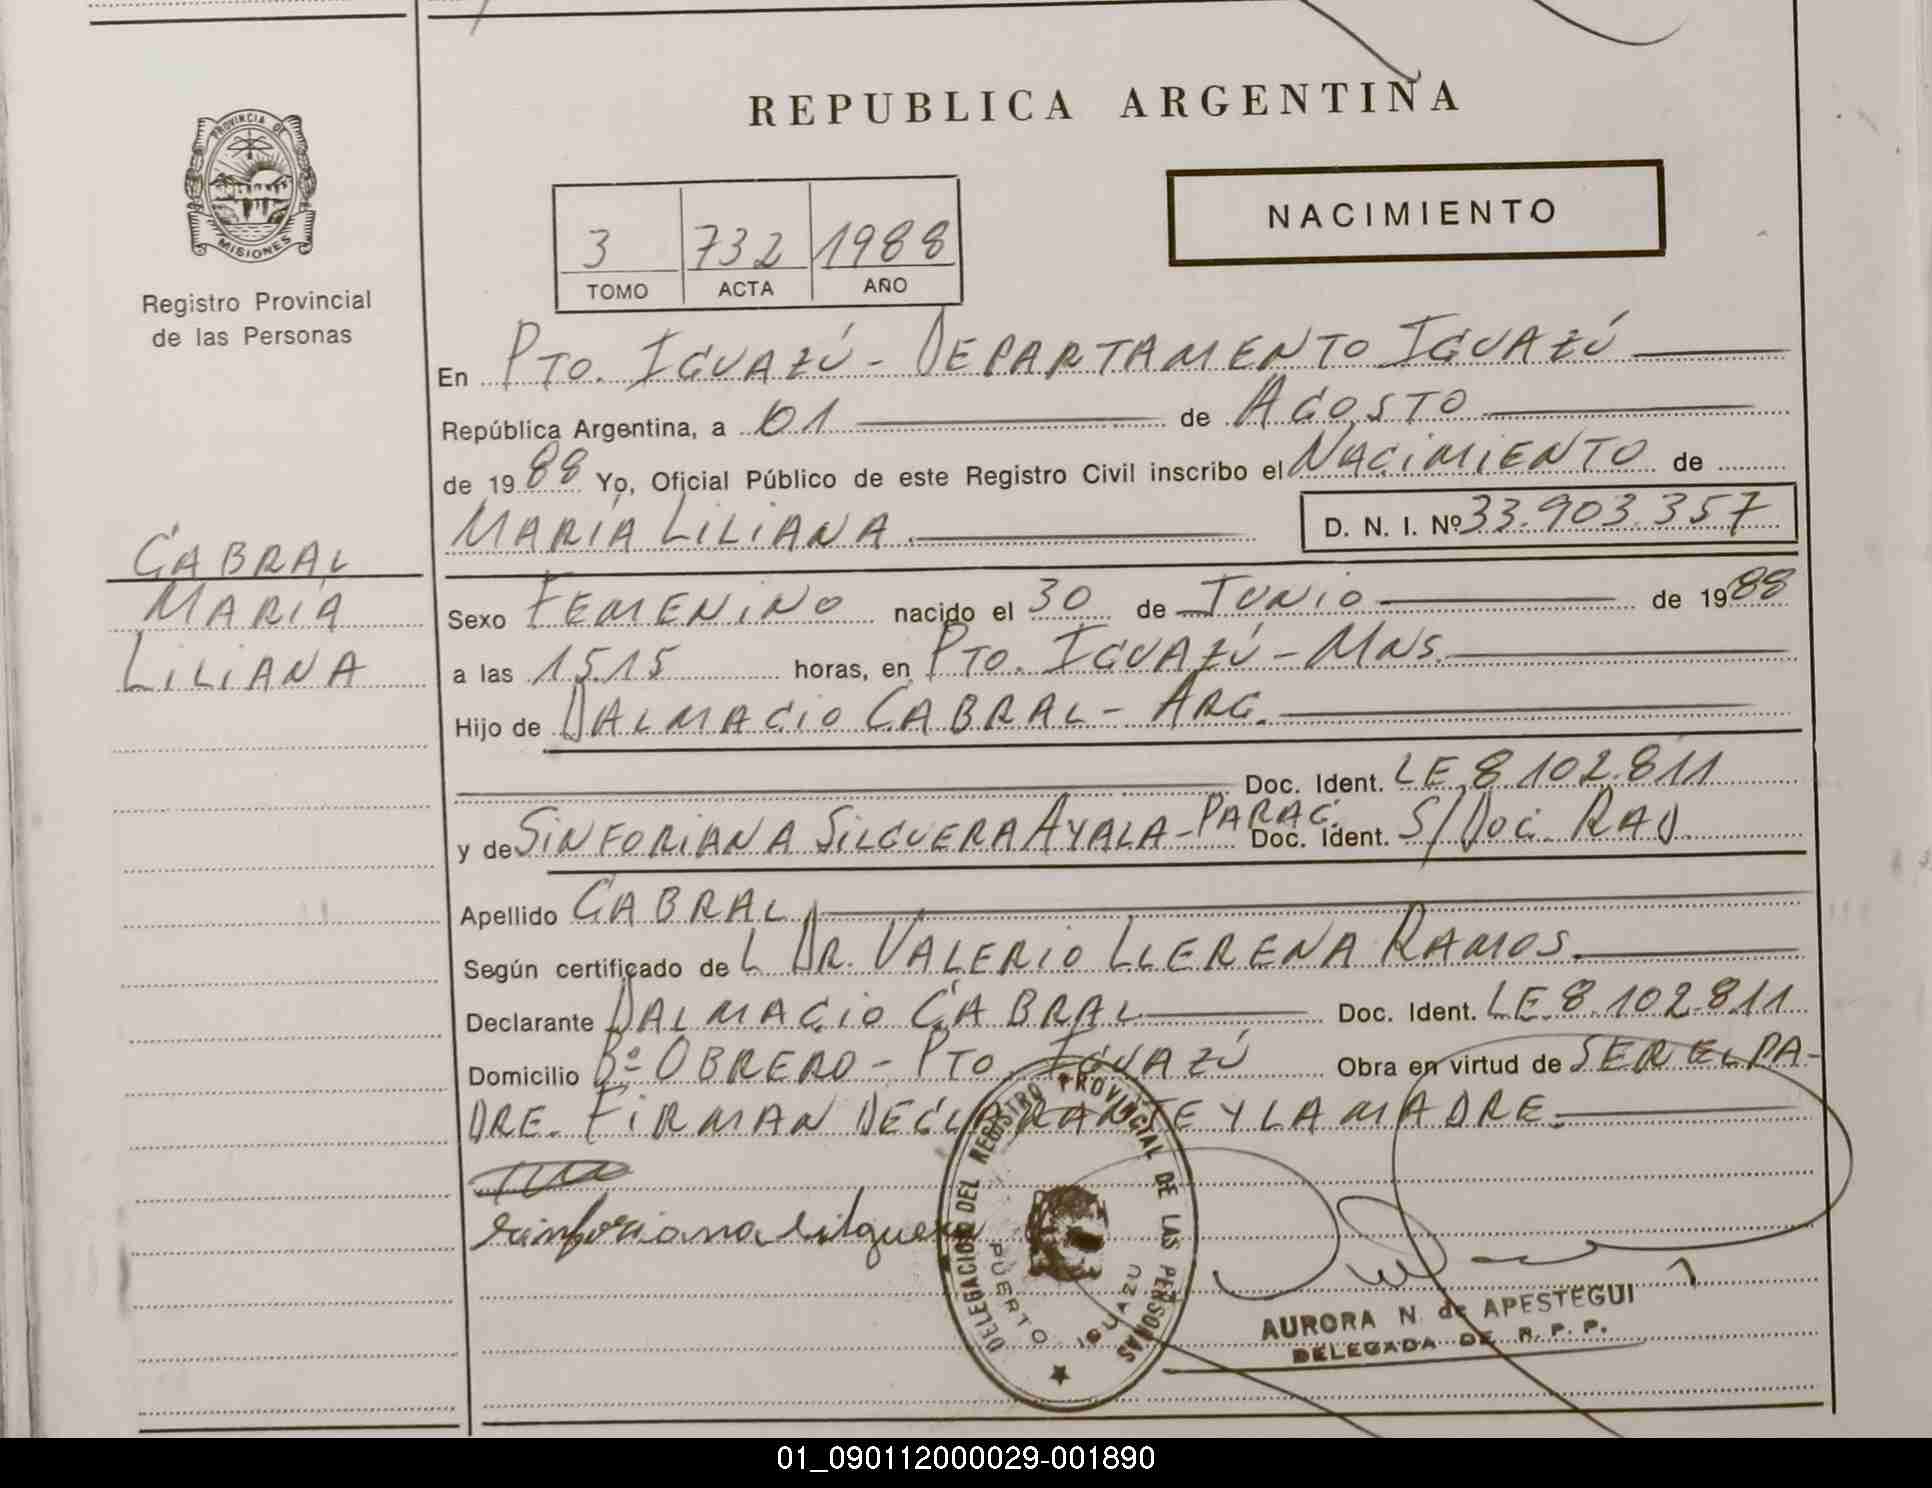 REPUBLICA ARGENTINA
PROVINCIA DE
MISIONES
Registro Provincial
de las Personas
NACIMIENTO
3 732 1988
TOMO ACTA AÑO
En PTO. IGUAZÚ - DEPARTAMENTO IGUAZÚ
República Argentina, a 01 de AGOSTO
de 1988 Yo, Oficial Público de este Registro Civil inscribo el NACIMIENTO de
MARÍA LILIANA D. N. I. Nº 33.903.357
CABRAL
MARÍA
LILIANA
Sexo FEMENINO nacido el 30 de JUNIO de 1988
a las 15.15 horas, en PTO. IGUAZÚ - MNS.
Hijo de DALMACIO CABRAL - ARG.
Doc. Ident. LE 8.102.811
y de SINFORIANA SILGUERA AYALA - PARAG. Doc. Ident. S/Doc. RAD.
Apellido CABRAL
Según certificado de L DR. VALERIO LLERENA RAMOS.
Declarante DALMACIO CABRAL Doc. Ident. LE 8.102.811
Domicilio Bº OBRERO - PTO. IGUAZÚ Obra en virtud de SER EL PA-
DRE. FIRMAN DECLARANTE Y LA MADRE.
sinforiana silguera
DELEGACION DEL REGISTRO PROVINCIAL DE LAS PERSONAS
PUERTO IGUAZU
AURORA N. de APESTEGUI
DELEGADA DE R. P. P.
01_090112000029-001890